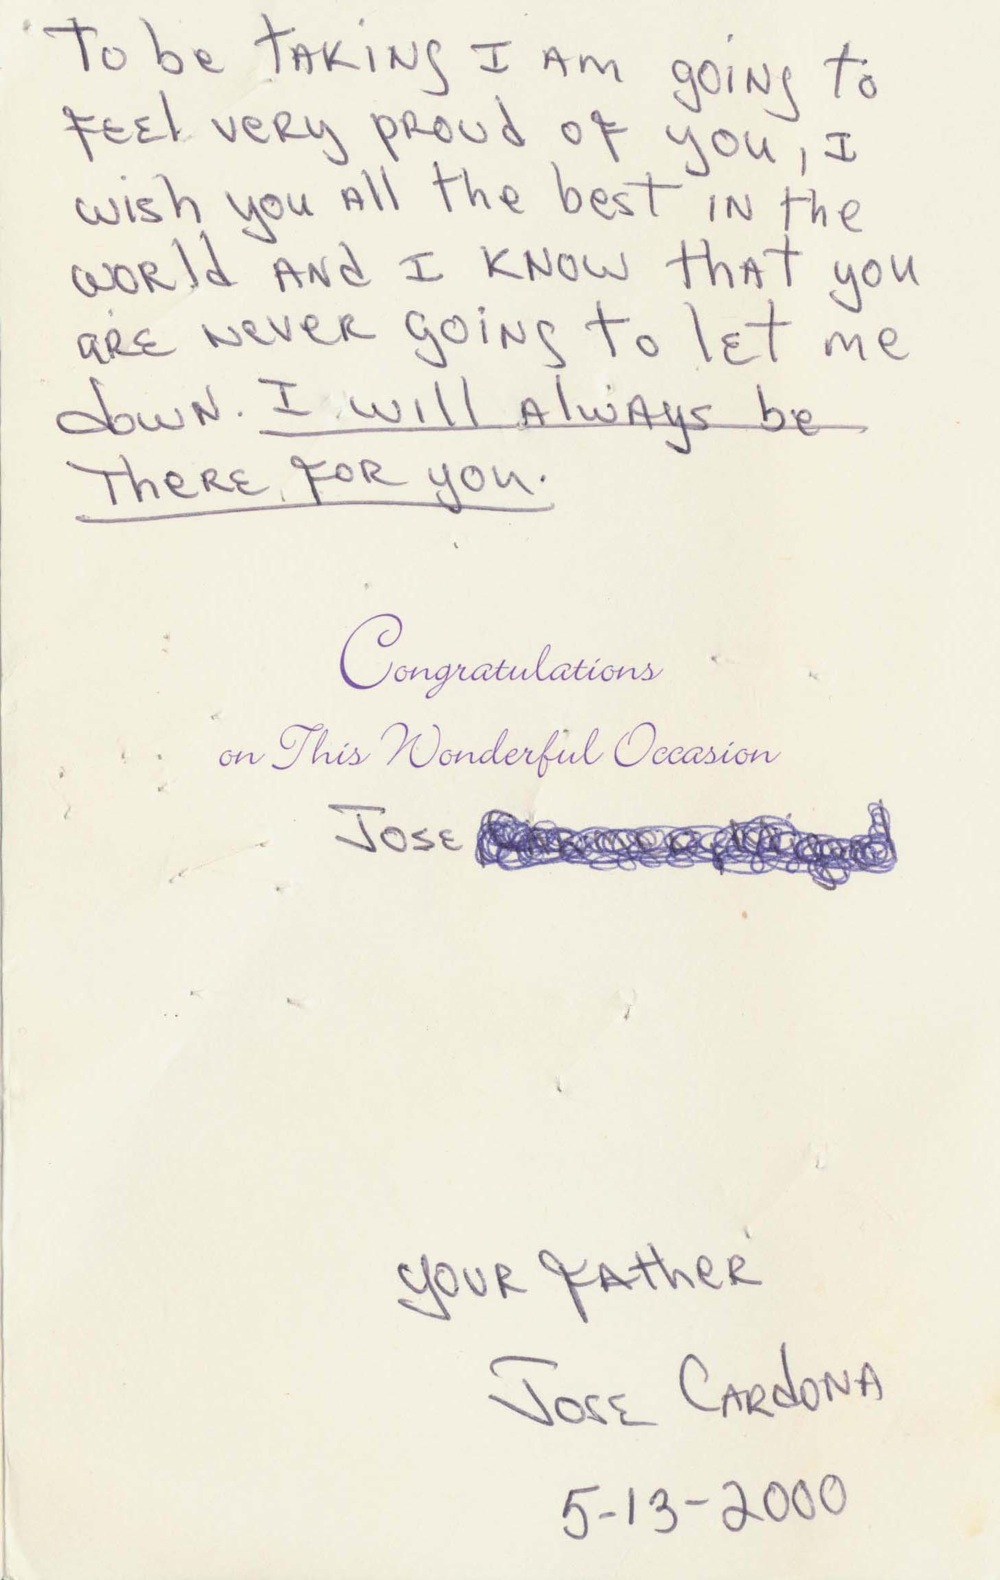 To be taking I am going to
feel very proud of you, I
wish you all the best in the
world and I know that you
are never going to let me
down. I will always be
there for you.
Congratulations
on This Wonderful Occasion
Jose
your father
Jose Cardona
5-13-2000